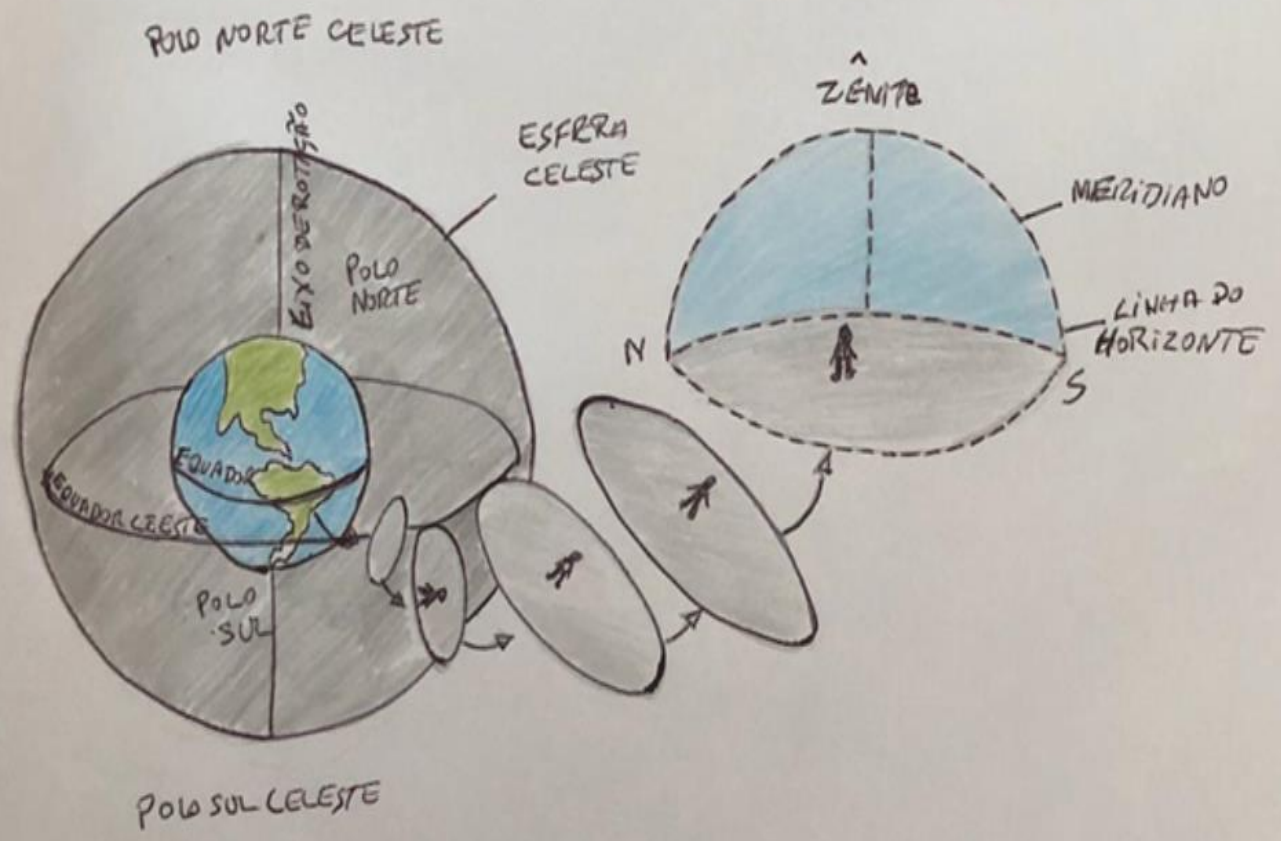 POLO NORTE CELESTE
EIXO DE ROTAÇÃO
ESFERA
CELESTE
POLO
NORTE
EQUADOR
EQUADOR CELESTE
POLO
SUL
POLO SUL CELESTE
ZÊNITE
MERIDIANO
LINHA DO
HORIZONTE
N
S